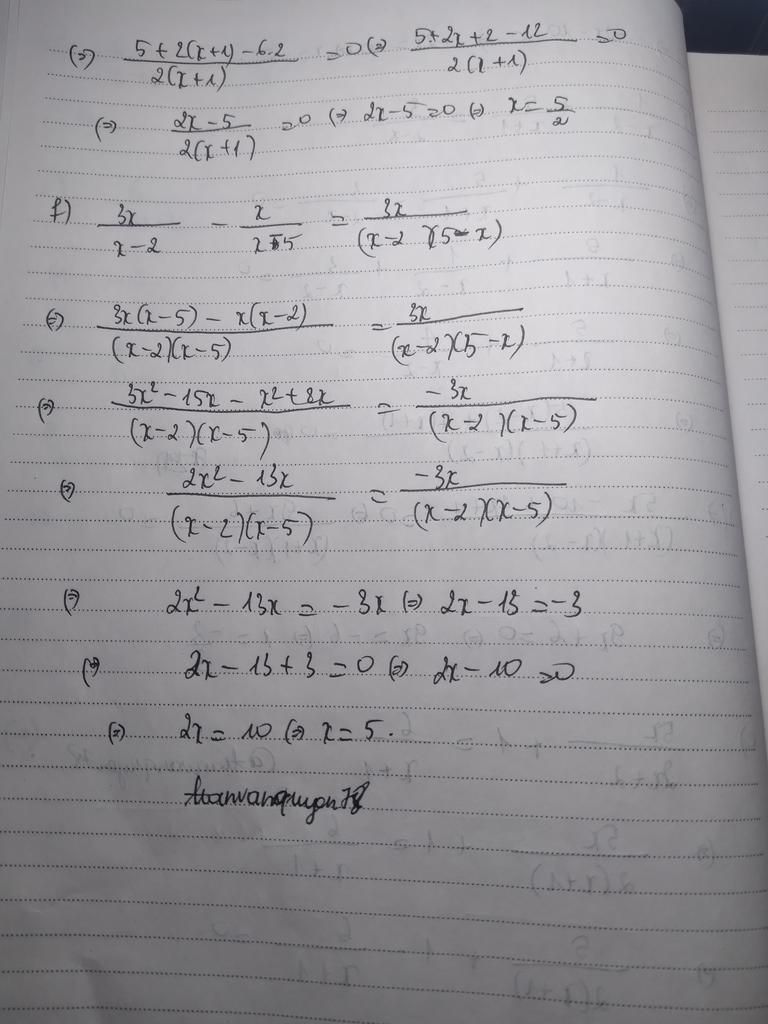 (=) (5+2(x+1)-6.2)/(2(x+1)) =0 (=) (5+2x+2-12)/(2(x+1)) =0
(=) (2x-5)/(2(x+1)) =0 (=) 2x-5=0 (=) x=5/2
f) 3x/(x-2) - x/(x-5) = 3x/((x-2)(5-x))
(=) (3x(x-5) - x(x-2))/((x-2)(x-5)) = 3x/((x-2)(5-x))
(=) (3x²-15x-x²+2x)/((x-2)(x-5)) = -3x/((x-2)(x-5))
(=) (2x²-13x)/((x-2)(x-5)) = -3x/((x-2)(x-5))
(=) 2x²-13x = -3x (=) 2x-13=-3
(=) 2x-13+3=0 (=) 2x-10=0
(=) 2x=10 (=) x=5.